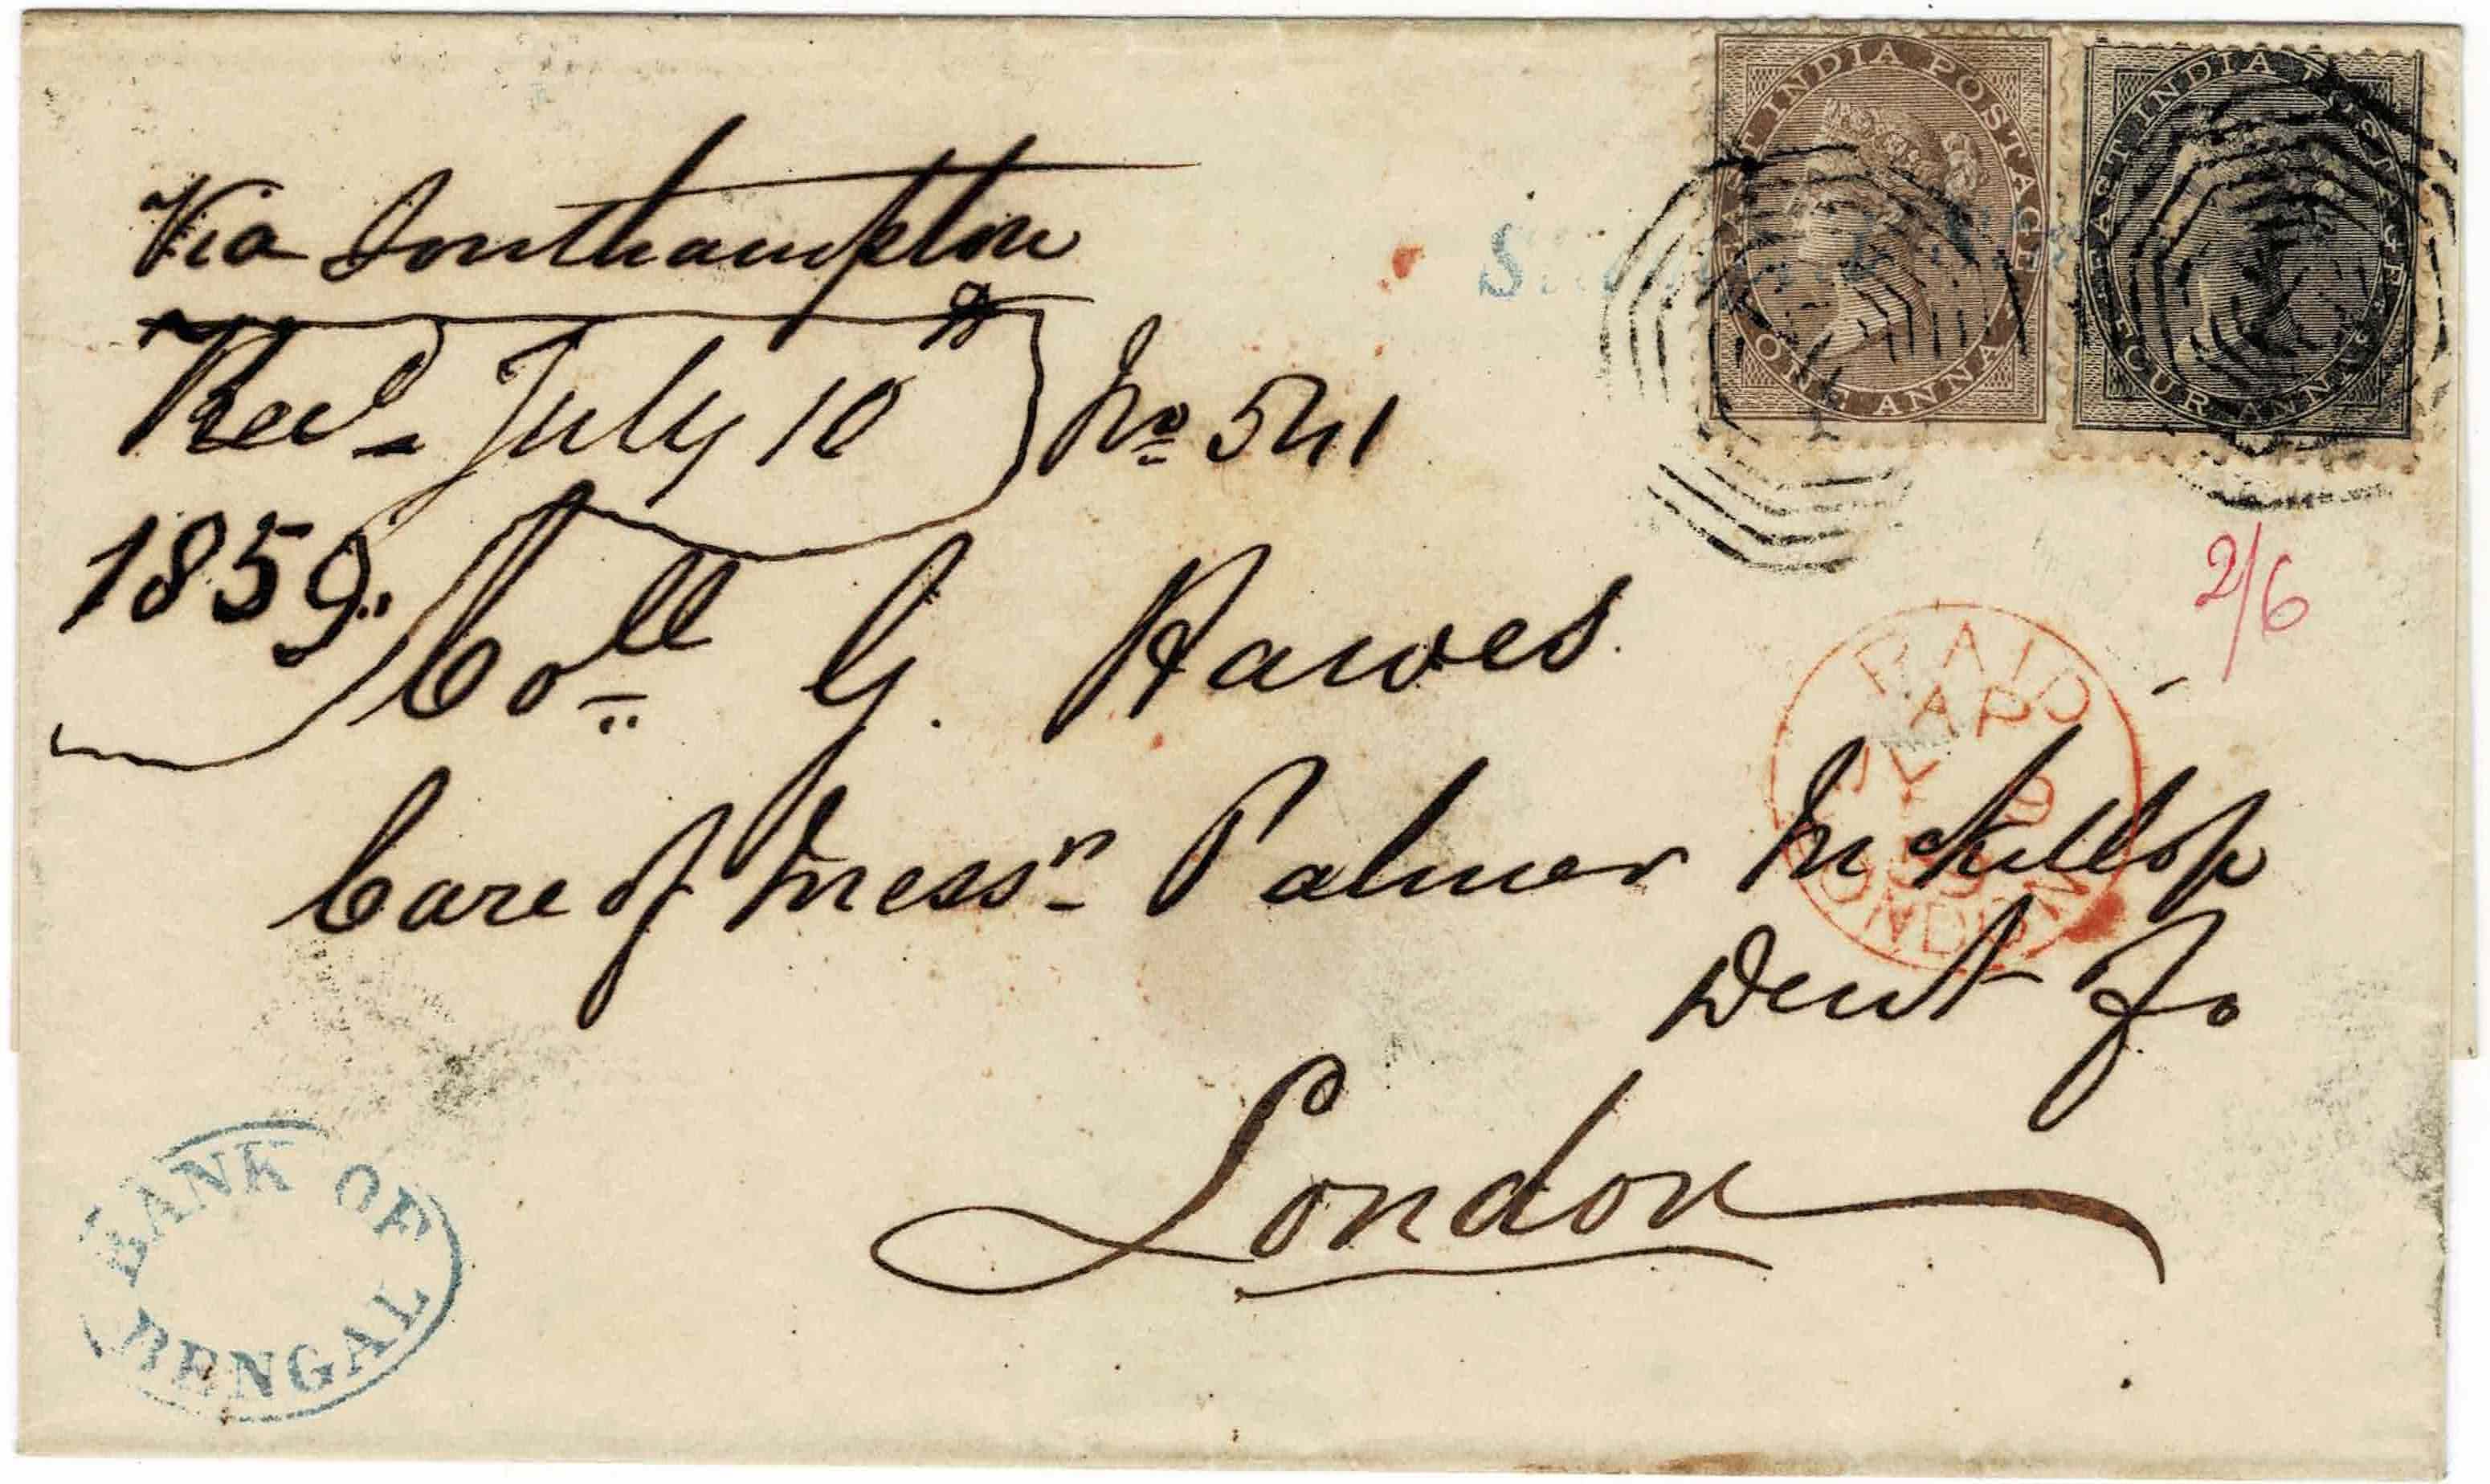 Via Southampton
Recd July 10th No 541
1859.
Coll G. Hawes.
Care of Messrs Palmer McKillop
Dent & Co
London
EAST INDIA POSTAGE
ONE ANNA
EAST INDIA POSTAGE
FOUR ANNAS
2/6
PAID
AP
JY 9
59
LONDON
BANK OF
BENGAL